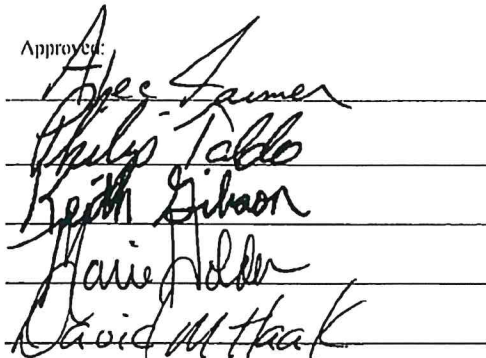 Approved:
Farmer
Philip Taldo
Keith Gibson
Marie Holder
David M Haak